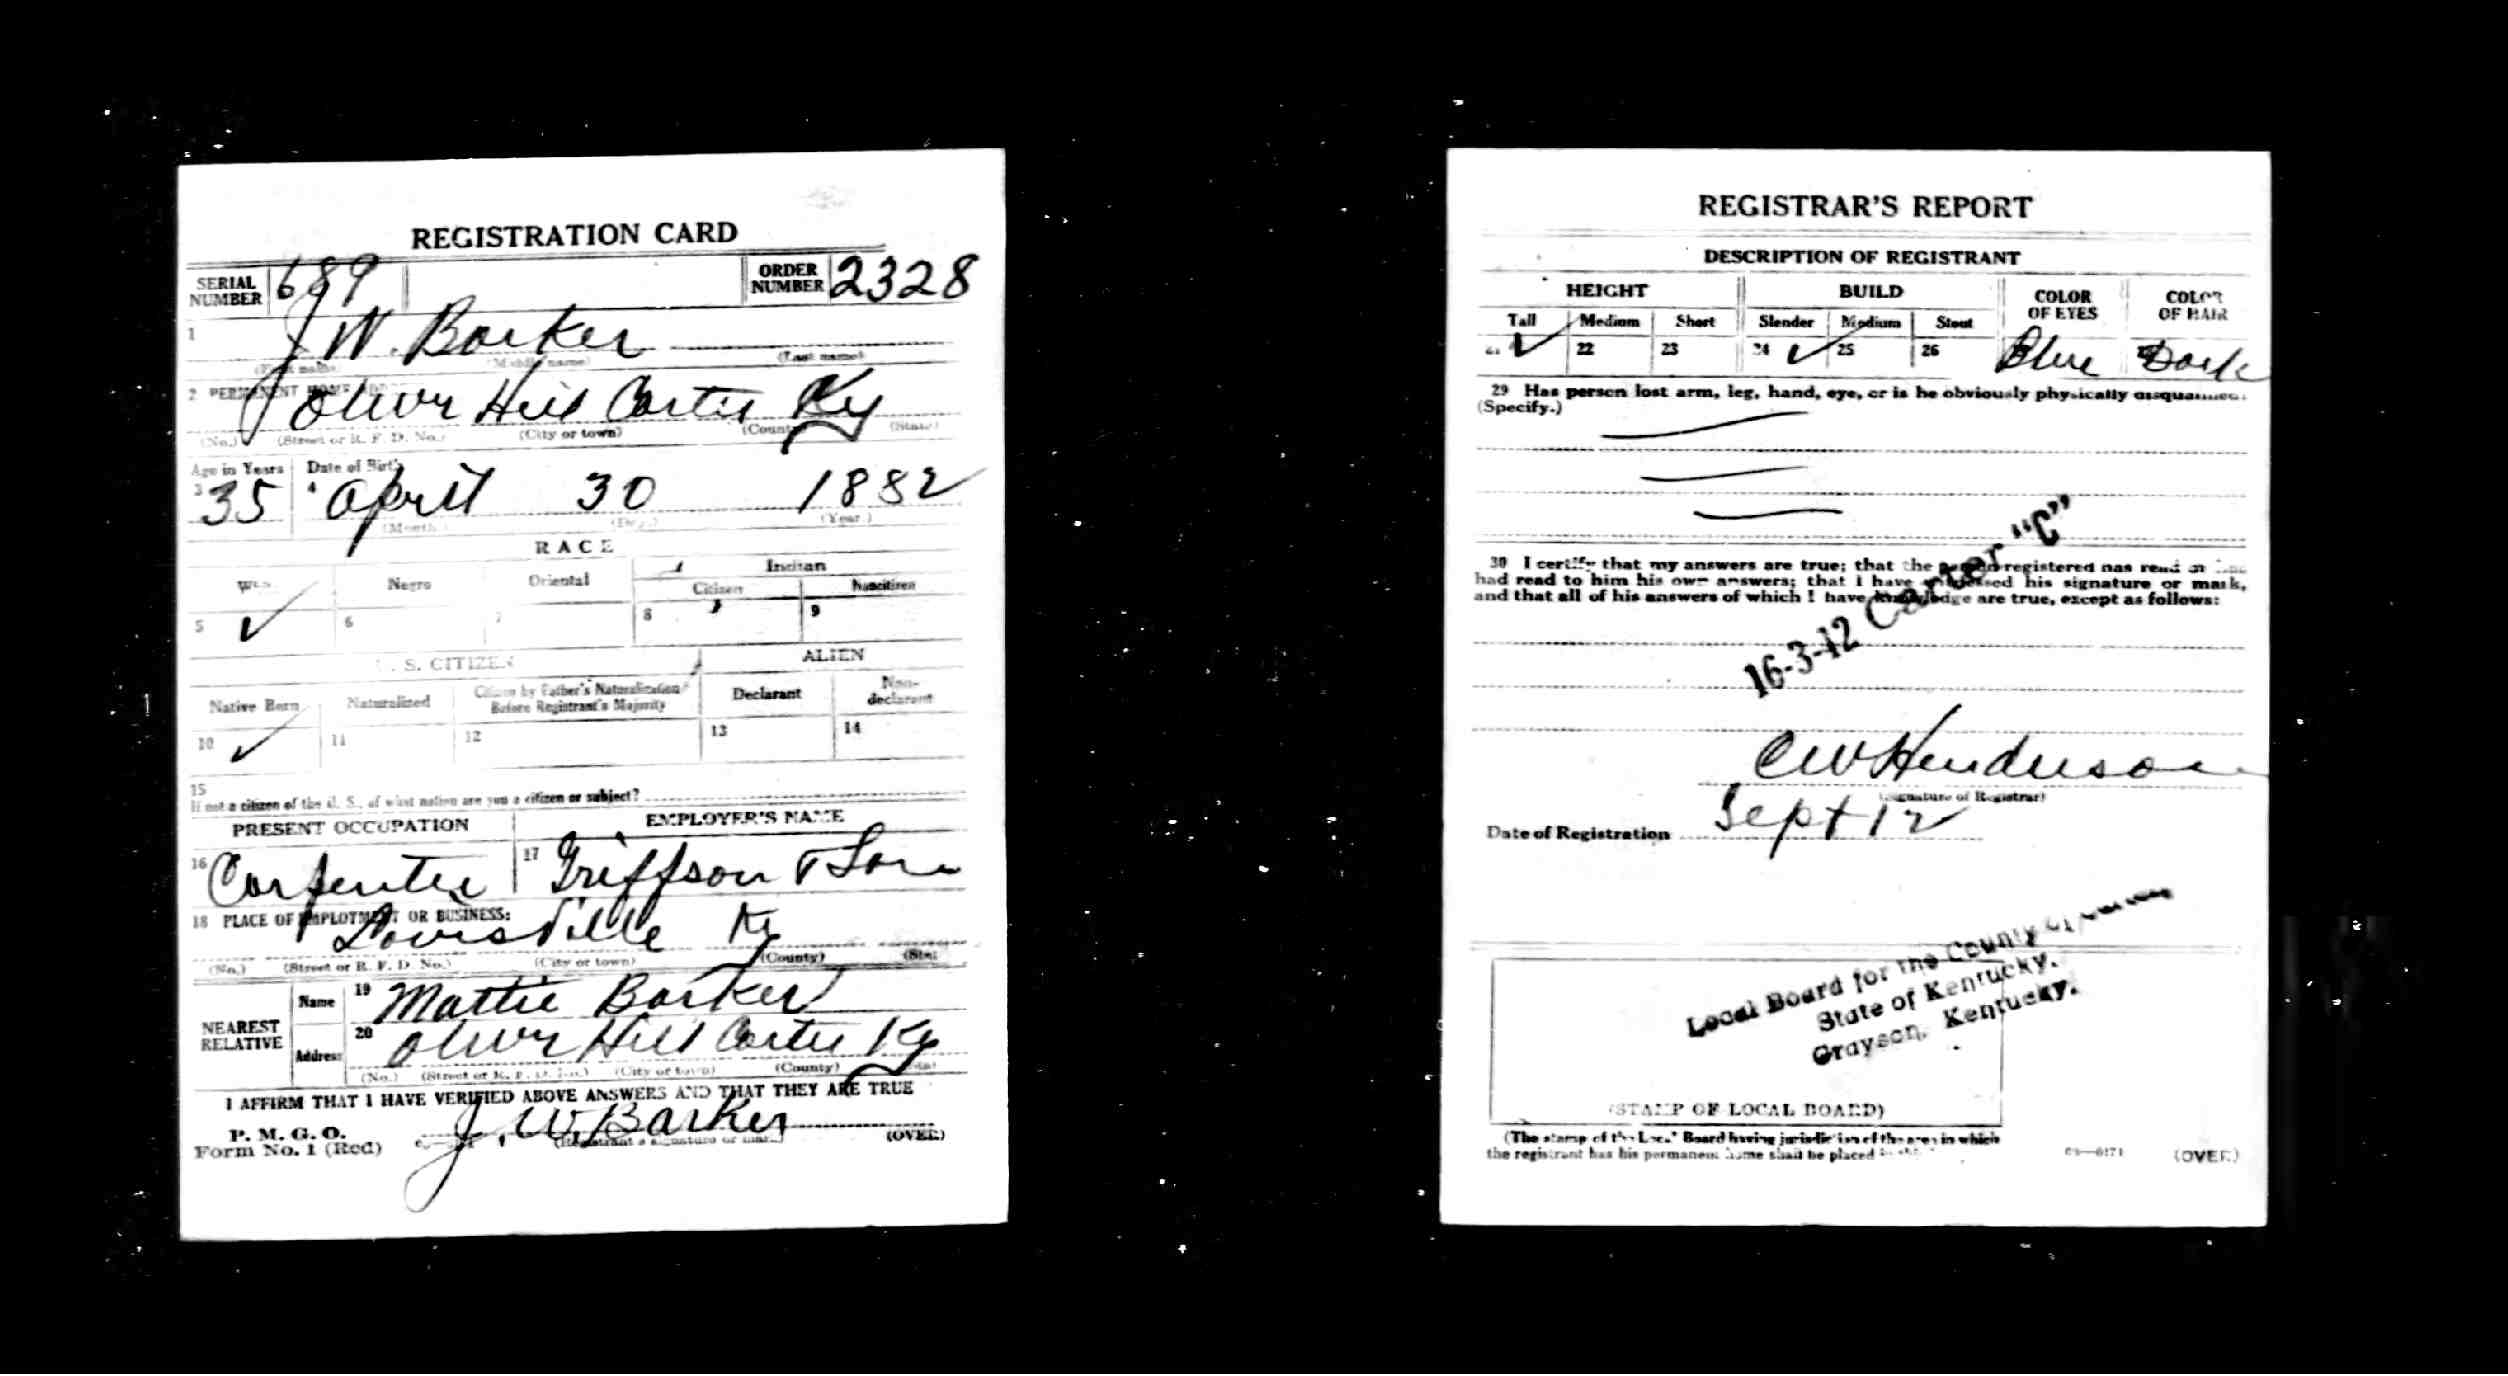 REGISTRATION CARD
SERIAL NUMBER 689 ORDER NUMBER 2328
1 J. W. Barker
(First name) (Middle name) (Last name)
2 PERMANENT HOME
Oliver Hill Carter Ky
(No.) (Street or R. F. D. No.) (City or town) (County) (State)
Age in Years Date of Birth
3 35 4 April 30 1882
(Month) (Day) (Year)
RACE
Negro Oriental Indian
Citizen Noncitizen
5 ✓ 6 7 8 9
U. S. CITIZEN ALIEN
Native Born Naturalized Citizen by Father's Naturalization Before Registrant's Majority Declarant Non-declarant
10 ✓ 11 12 13 14
15
If not a citizen of the U. S., of what nation are you a citizen or subject?
PRESENT OCCUPATION EMPLOYER'S NAME
16 Carpenter 17 Griffson & Son
18 PLACE OF EMPLOYMENT OR BUSINESS:
Louisville Ky
(No.) (Street or R. F. D. No.) (City or town) (County) (State)
NEAREST RELATIVE Name 19 Mattie Barker
Address 20 Oliver Hill Carter Ky
(No.) (Street or R. F. D. No.) (City or town) (County) (State)
I AFFIRM THAT I HAVE VERIFIED ABOVE ANSWERS AND THAT THEY ARE TRUE
P. M. G. O.
Form No. 1 (Red) J. W. Barker
(Registrant's signature or mark) (OVER)
REGISTRAR'S REPORT
DESCRIPTION OF REGISTRANT
HEIGHT BUILD COLOR OF EYES COLOR OF HAIR
Tall Medium Short Slender Medium Stout
21 ✓ 22 23 24 ✓ 25 26 Blue Dark
29 Has person lost arm, leg, hand, eye, or is he obviously physically disqualified?
(Specify.)
30 I certify that my answers are true; that the person registered has read or has
had read to him his own answers; that I have witnessed his signature or mark,
and that all of his answers of which I have knowledge are true, except as follows:
16-3-12 Carter "C"
C W Henderson
(Signature of Registrar)
Date of Registration Sept 12
Local Board for the County of
State of Kentucky.
Grayson, Kentucky.
(STAMP OF LOCAL BOARD)
(The stamp of the Local Board having jurisdiction of the area in which
the registrant has his permanent home shall be placed
(OVER)